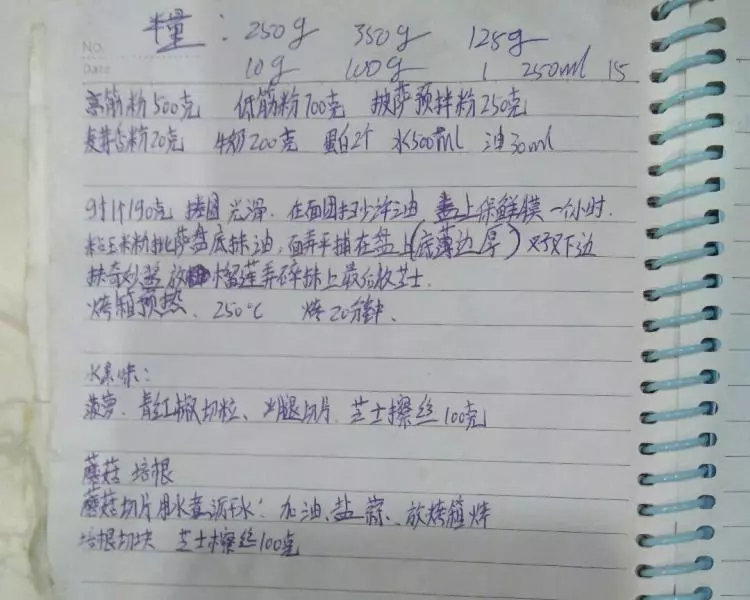 半量: 250g 350g 125g
No.
Date 10g 100g 1 250ml 15
高筋粉500克 低筋粉700克 披萨预拌粉250克
麦芽香粉20克 牛奶200克 蛋白2个 水500ml 油30ml
9寸1个190克 搓圆光滑.在面团扫少许油 盖上保鲜膜一个小时.
粘玉米粉批萨盘底抹油,面弄平捕在盘上(底薄边厚)对下边
抹奇妙酱放 榴莲弄碎抹上最后放芝士.
烤箱预热、250°C 烤20分钟、
水果味:
菠萝.青红椒切粒、火腿切片.芝士擦丝100克
蘑菇 培根
蘑菇切片用水煮沥干水:加油、盐蒜、放烤箱烤
培根切块 芝士擦丝100克